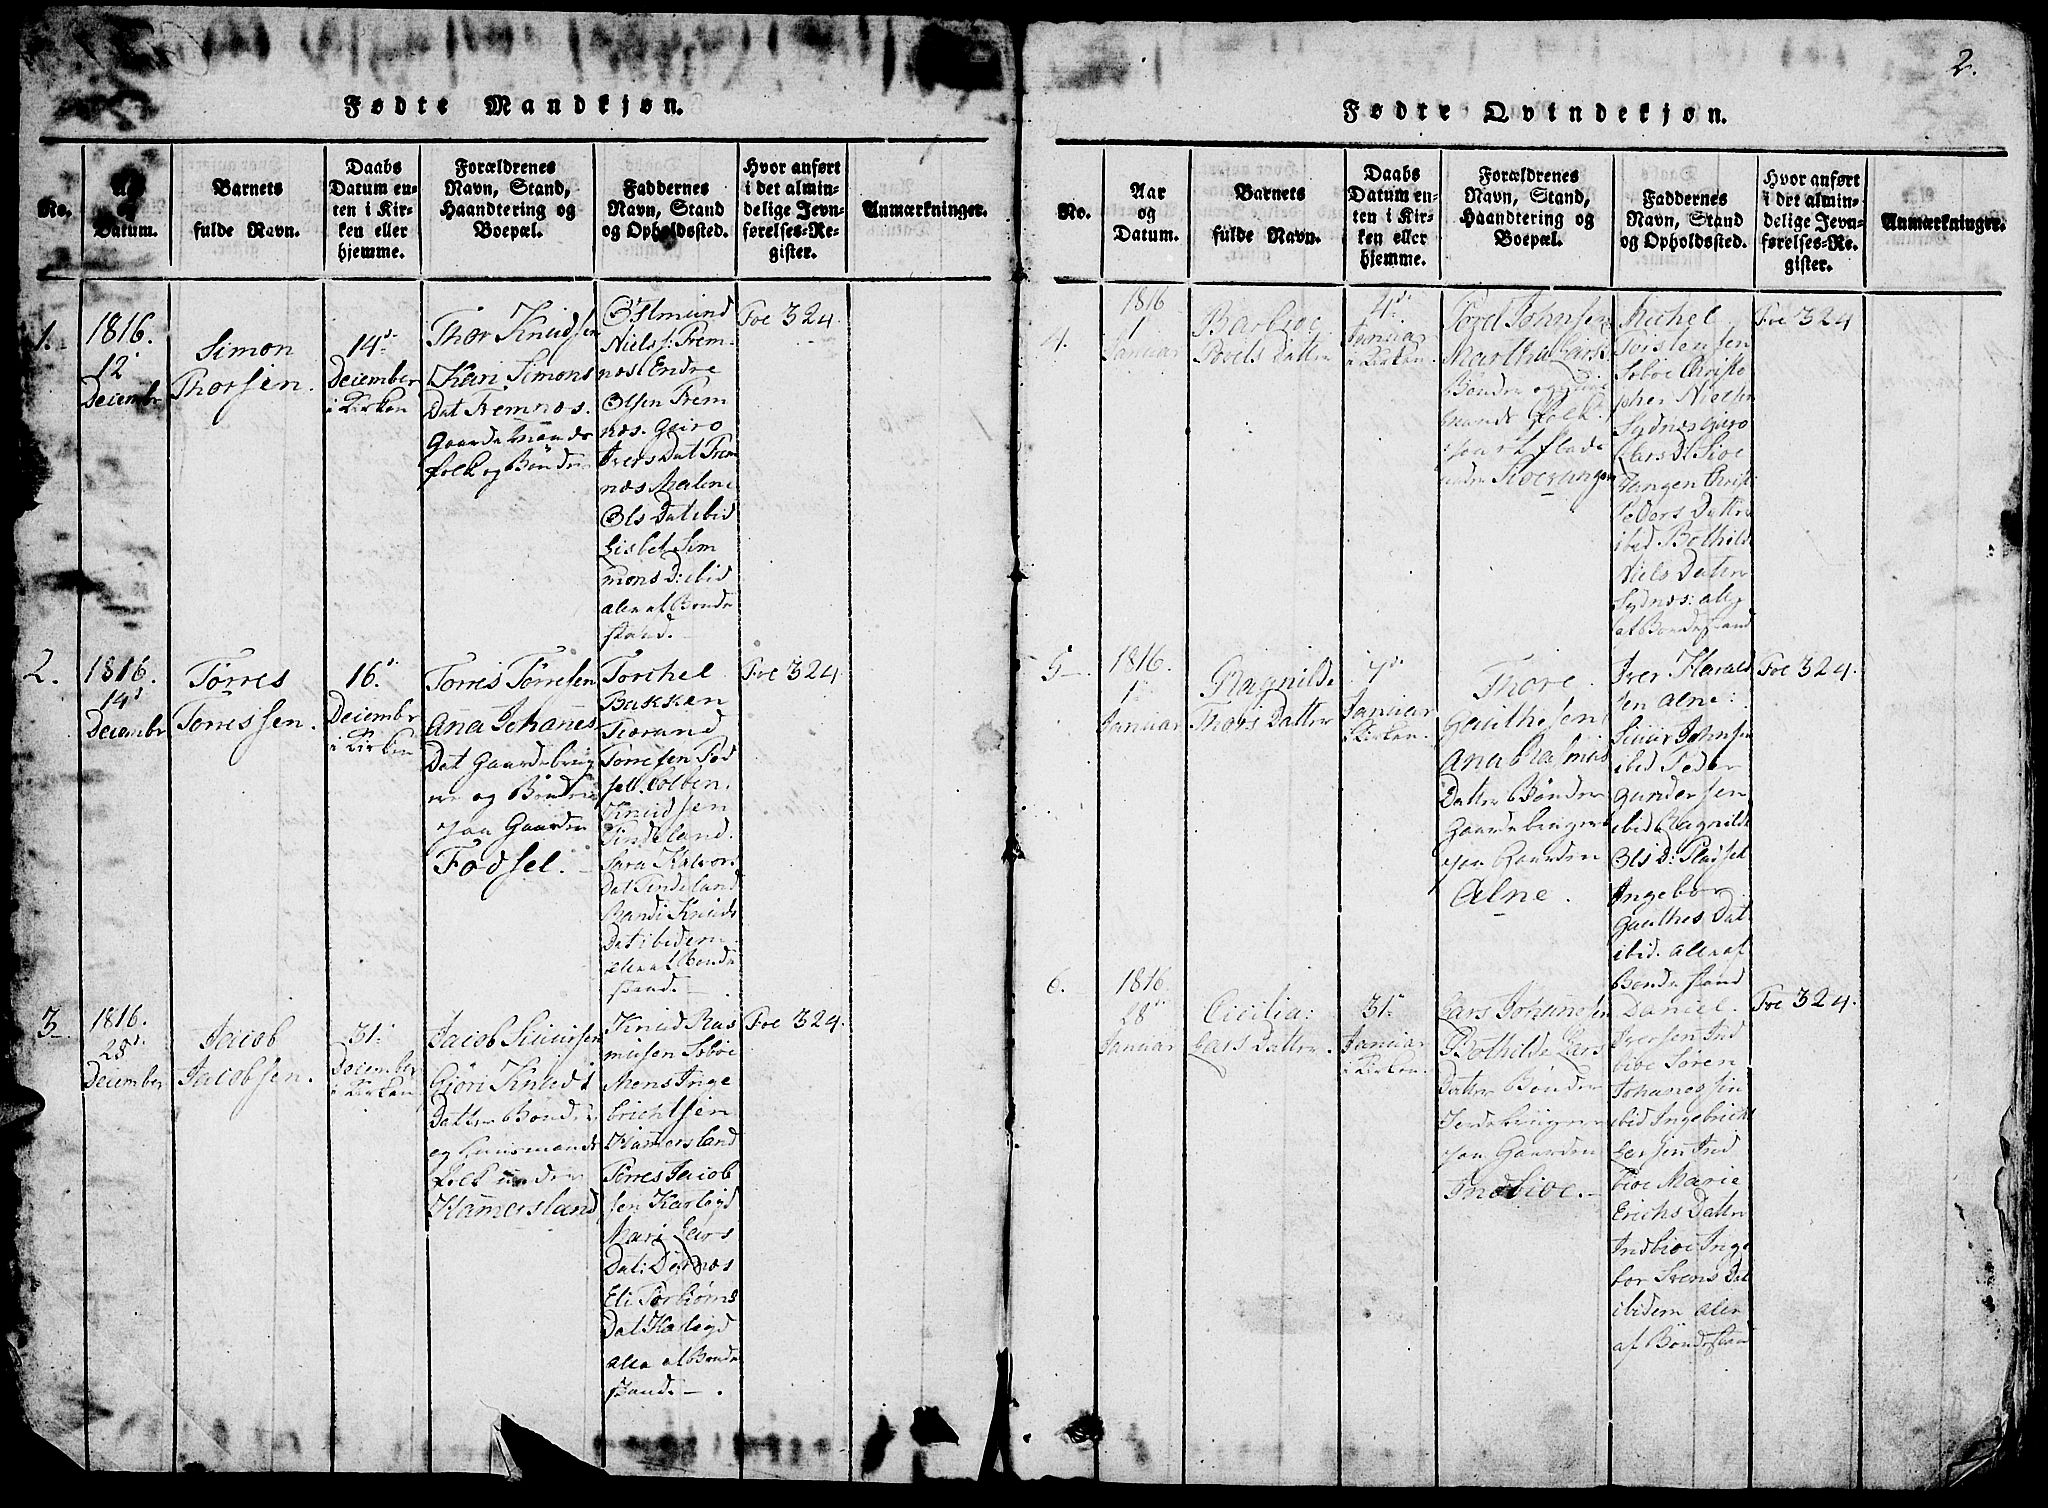 2.
Fødte Mandkjøn.
No.
Aar
og
Datum.
Barnets
fulde Navn.
Daabs
Datum en-
ten i Kir-
ken eller
hjemme.
Forældrenes
Navn, Stand,
Haandtering og
Boepæl.
Faddernes
Navn, Stand
og Opholdssted.
Hvor anført
i det almin-
delige Jevn-
førelses-Re-
gister.
Anmærkninger.
1.
1816.
12
Decembr
Simon
Thorsen.
14de
December
i Kirken
Thor Knudsen
Kari Simons
Dat Tremnæs.
Gaardmands
folk og Bønder
Niels s: Trem-
næs Endre
Olsen Trem
næs. Guro
Ivers Dat Trem
næs Malene
Ols Dat ibid
Lisbet Sim
mons D: ibid
alle af Bonde
stand.
Foe 324.
2.
1816.
14d
Decembr
Tørres
Torressen.
16.
Decembr
i Kirken
Torris Tørresen
Ana Johanes
Dat Gaardebrug
ere og Bønder
paa Gaarden
Fodsel.
Torchel
Bakken
Torand
Torresen Fod
sell. Colben.
Knudsen
Tindeland.
Sara Halvors
Dat Tindeland
Randi Knuds
Dat ibidem
alle af Bonde
stand.
Foe 324
3.
1816.
28d.
December
Jacob
Jacobsen.
31.
December
i Kirken
Jacob Siursen
Giöri Knuds
Datter Bønder
og huusmands
folk under
Hamersland
Knud Ras
musen Soboe
Mons Inge
brichtsen
Hamersland
Torres Jacob
sen Karløyd
Mari Lars
Dat: Dornæs
Eli Torbiøns
Dat Karløyd
alle af Bonde
stand.
Foe 324.
Fødte Qvindekjøn.
No.
Aar
og
Datum.
Barnets
fulde Navn.
Daabs
Datum en-
ten i Kir-
ken eller
hjemme.
Forældrenes
Navn, Stand,
Haandtering og
Boepæl.
Faddernes
Navn, Stand
og Opholdssted.
Hvor anført
i det almin-
delige Jevn-
førelses-Re-
gister.
Anmærkninger.
4.
1816
1
Januar
Barbroe
Povels Datter
4de
Januar
i Kirken
Povel Johnsen
Martha Lars
Bønder og
mands folk
paa
under
Michel
Torstensen
Soboe Christo
pher Nielsen
Sydnes Guro
Lars D: Sioe
Tangen Christi
Peders Datter
ibid Bothilde
Niels Datter
Sydnæs: alle
af Bondestand
Foe 324
5.
1816.
1
Januar
Ragnilde
Thors Datter
7de
Januar
i Kirken.
Thore
Gauthesen
Ana Rasmus
Datter Bønder
Gaardebrugere
paa Gaarden
Alne.
Iver Harald
sen Alne:
Siur Johnsen
ibid Peder
Gundersen
ibid Ragnilde
Ols D: Pladset
Ingebor
Gauthes Dat
ibid. alle af
Bonde stand
Foe 324.
6.
1816.
28
Januar
Cicilia:
Lars Datter.
31
Januar
i Kirken.
Lars Johansen
Bothilde Lars
Datter Bønder
Jordebrugere
paa Gaarden
Indbioe.
Daniel
Iversen Ind
bioe Søren
Johanessen
ibid Ingebricht
Larsen Ind
bioe Marie
Erichs Datter
Indbioe Inge
bor Svens Dat
ibidem alle
af Bondestand
Foe 324.